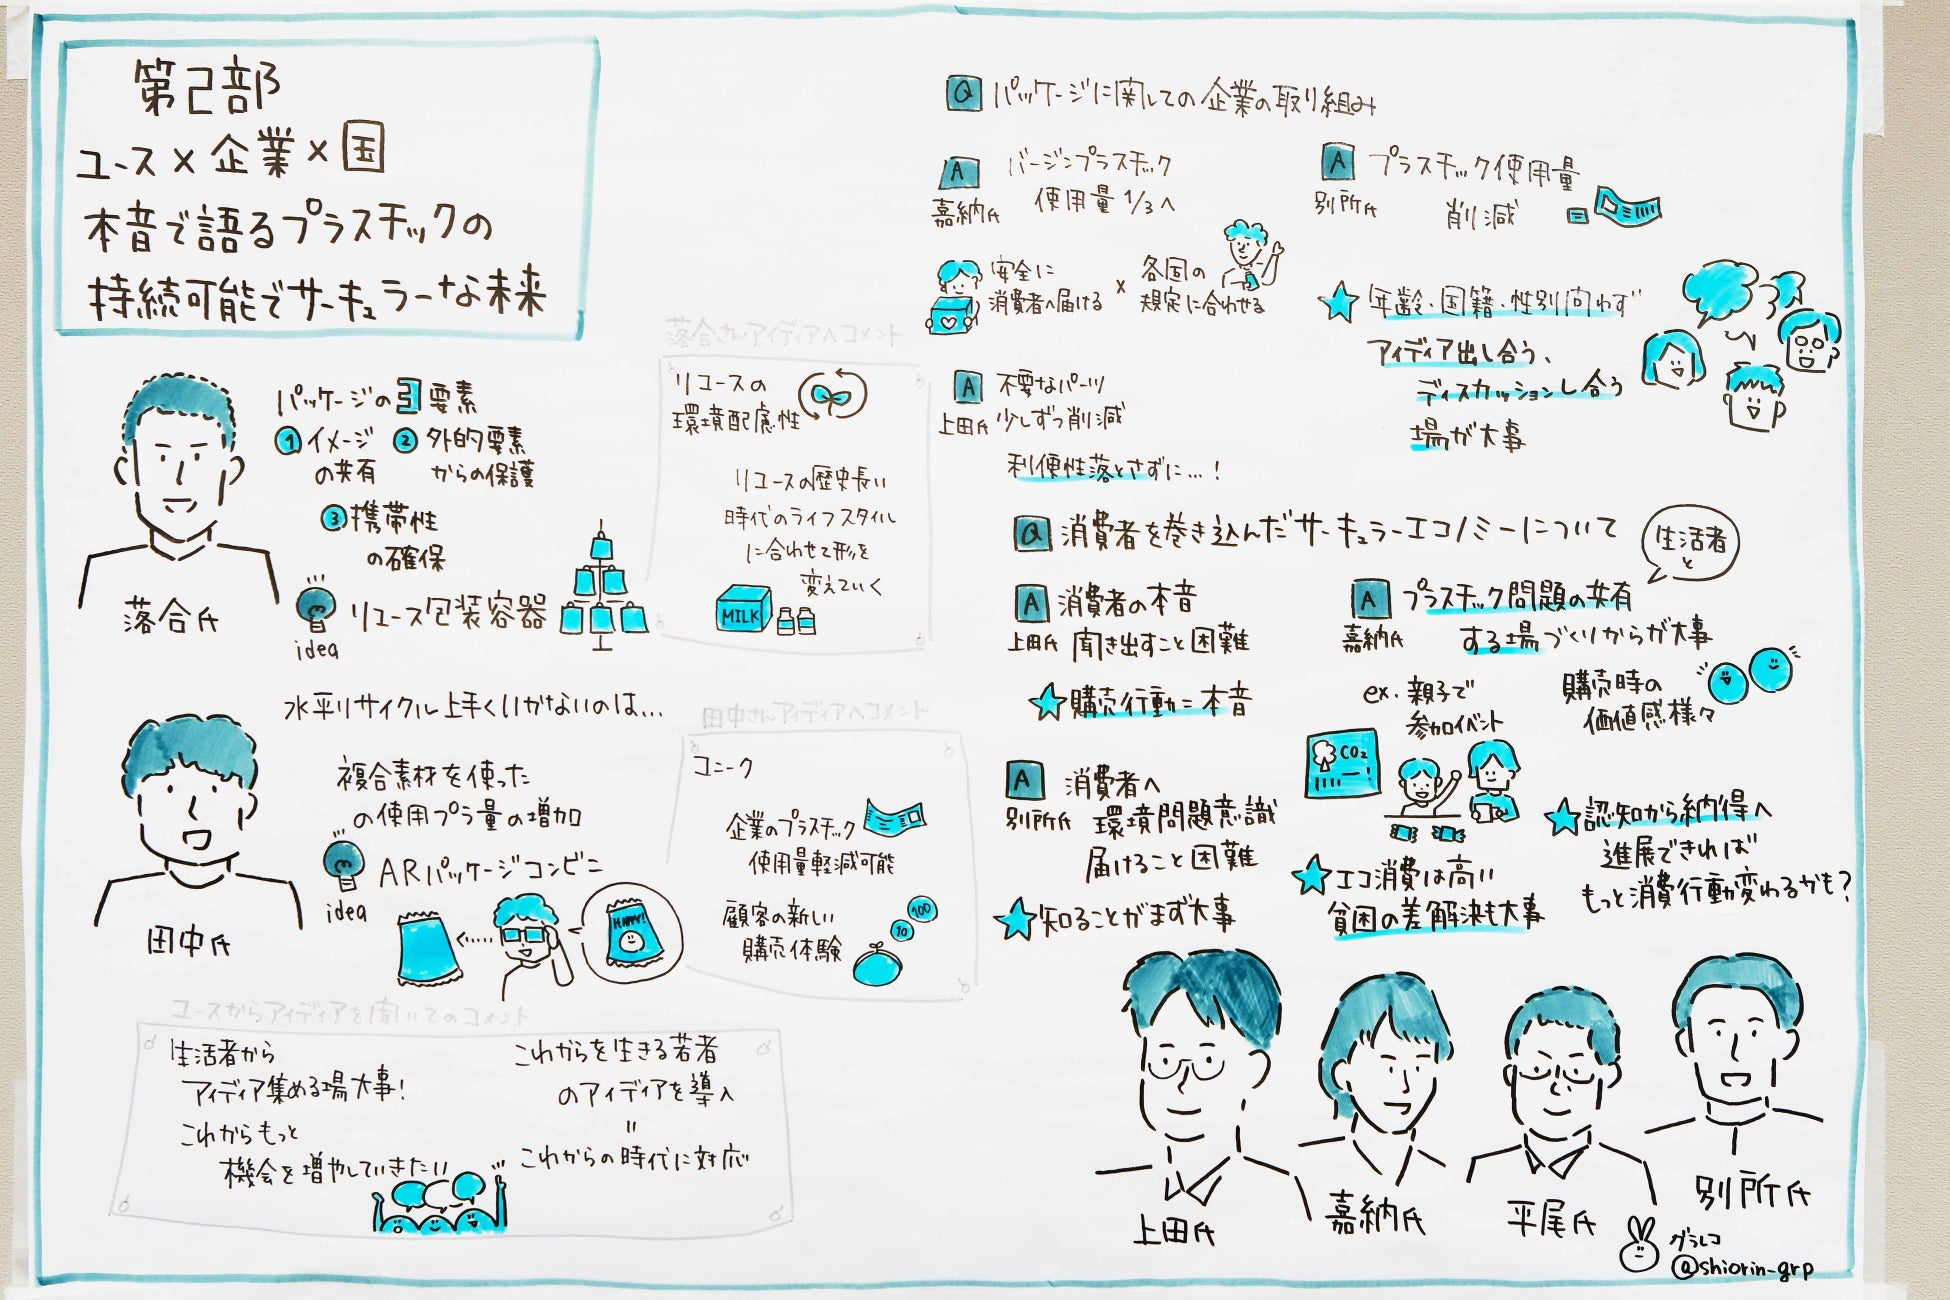 第2部
ユース×企業×国
本音で語るプラスチックの
持続可能でサーキュラーな未来
パッケージの3要素
① イメージ
の共有
② 外的要素
からの保護
③ 携帯性
の確保
idea
リユース包装容器
落合氏
落合さんアイディアへコメント
リユースの
環境配慮性
リユースの歴史長い
時代のライフスタイル
に合わせて形を
変えていく
MILK
水平リサイクル上手くいかないのは...
複合素材を使った
の使用プラ量の増加
idea
ARパッケージコンビニ
HAPPY!
田中氏
田中さんアイディアへコメント
ユニーク
企業のプラスチック
使用量軽減可能
顧客の新しい
購売体験
100
10
ユースからアイディアを聞いてのコメント
生活者から
アイディア集める場大事!
これからもっと
機会を増やしていきたい
これからを生きる若者
のアイディアを導入
=
これからの時代に対応
Q パッケージに関しての企業の取り組み
A バージンプラスチック
嘉納氏 使用量1/3へ
安全に
消費者へ届ける
×
各国の
規定に合わせる
A プラスチック使用量
別所氏 削減
A 不要なパーツ
上田氏 少しずつ削減
利便性落とさずに...!
年齢・国籍・性別問わず
アイディア出し合う、
ディスカッションし合う
場が大事
Q 消費者を巻き込んだサーキュラーエコノミーについて
A 消費者の本音
上田氏 聞き出すこと困難
購売行動=本音
生活者
と
A プラスチック問題の共有
嘉納氏 する場づくりからが大事
ex. 親子で
参加イベント
購売時の
価値感様々
CO2
A 消費者へ
別所氏 環境問題意識
届けること困難
知ることがまず大事
エコ消費は高い
貧困の差解決も大事
認知から納得へ
進展できれば
もっと消費行動変わるかも?
上田氏
嘉納氏
平尾氏
別所氏
グラレコ
@shiorin-grp